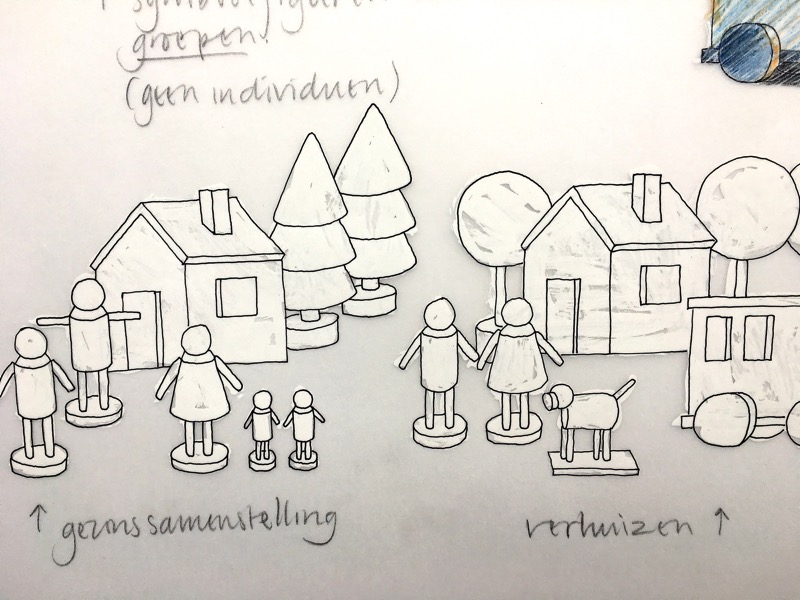 ↑ symboolfiguren
groepen!
(geen individuen)
↑ gezinssamenstelling
verhuizen ↑